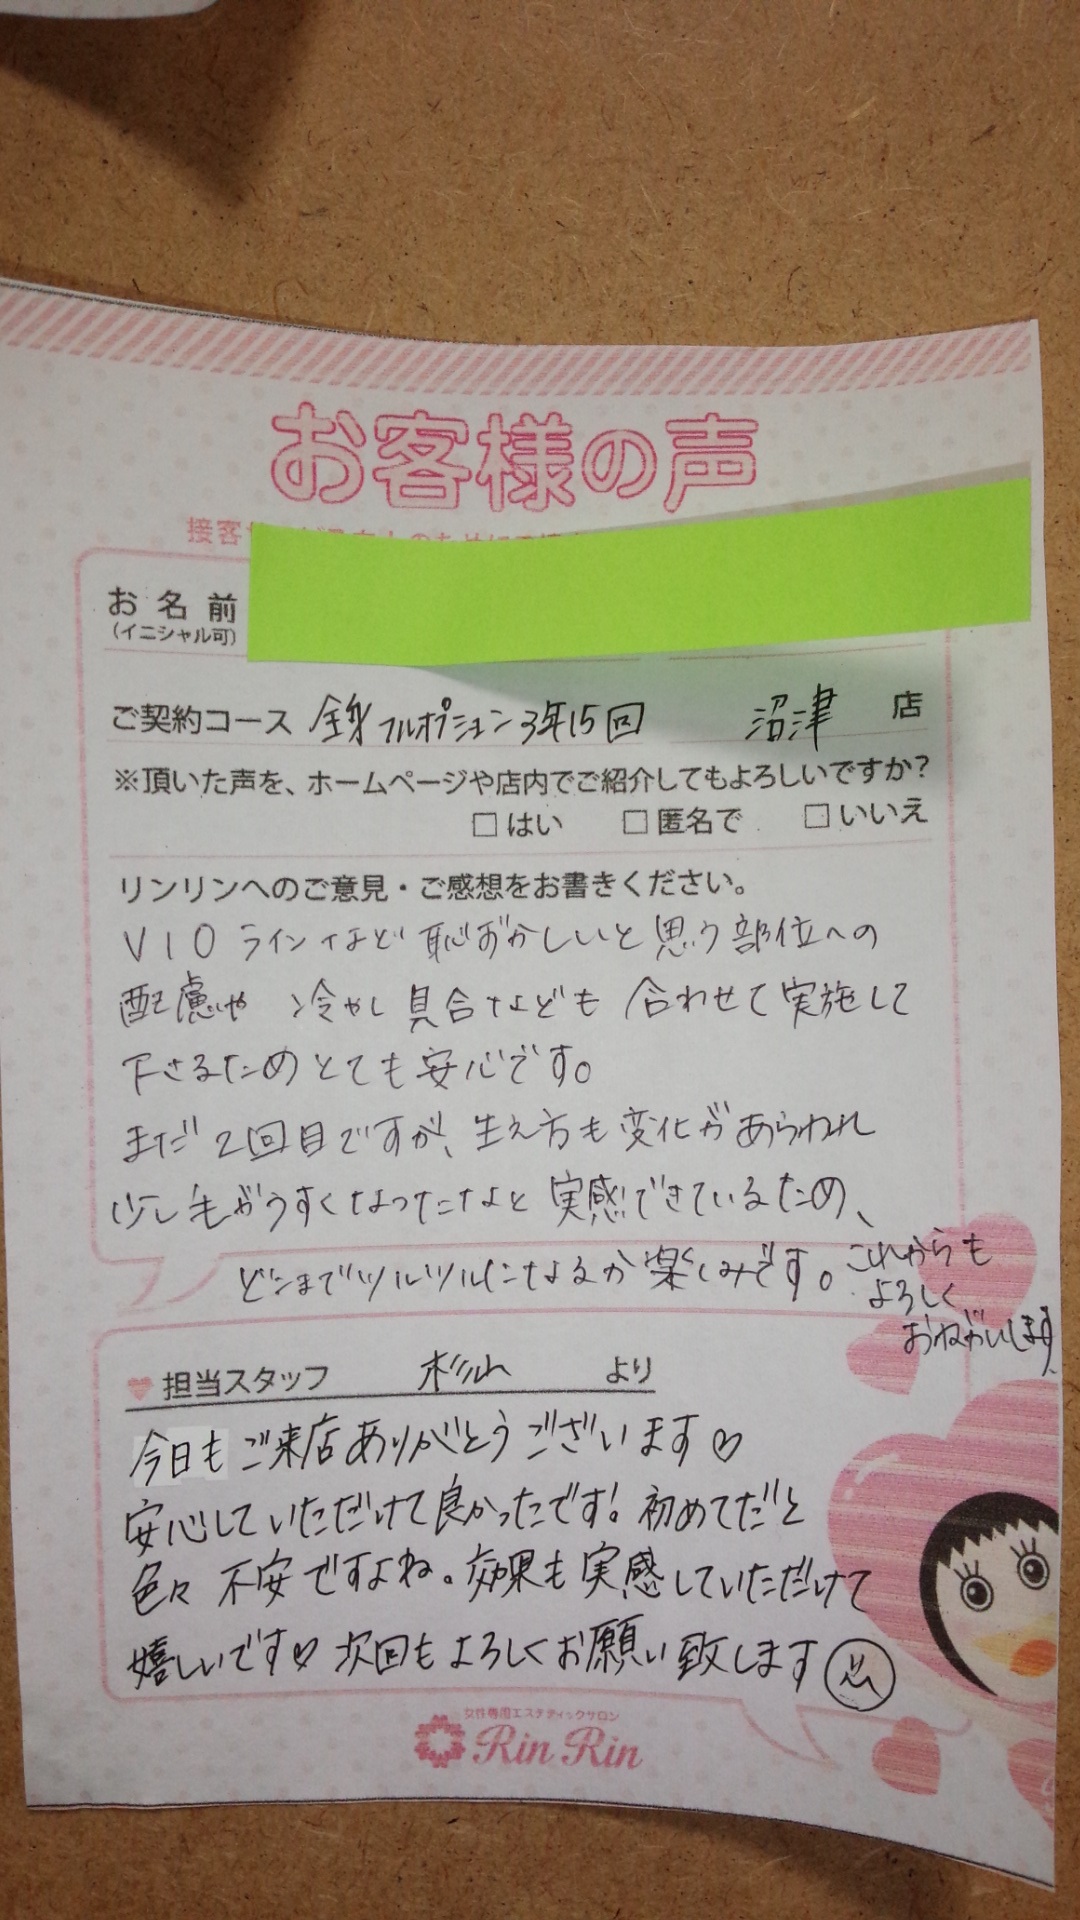 お客様の声
接客
お名前
(イニシャル可)
ご契約コース 全身フルオプション3年15回 沼津 店
※頂いた声を、ホームページや店内でご紹介してもよろしいですか?
□はい □匿名で □いいえ
リンリンへのご意見・ご感想をお書きください。
VIOラインなど恥ずかしいと思う部位への
配慮や 冷やし具合なども 合わせて実施して
下さるためとても安心です。
まだ2回目ですが、生え方も変化があらわれ
少し毛がうすくなったなと実感できているため、
どこまでツルツルになるか楽しみです。これからも
よろしく
おねがいします
♥担当スタッフ 杉山 より
今日もご来店ありがとうございます♡
安心していただけて良かったです!初めてだと
色々不安ですよね。効果も実感していただけて
嬉しいです♡次回もよろしくお願い致します
女性専用エステティックサロン
Rin Rin